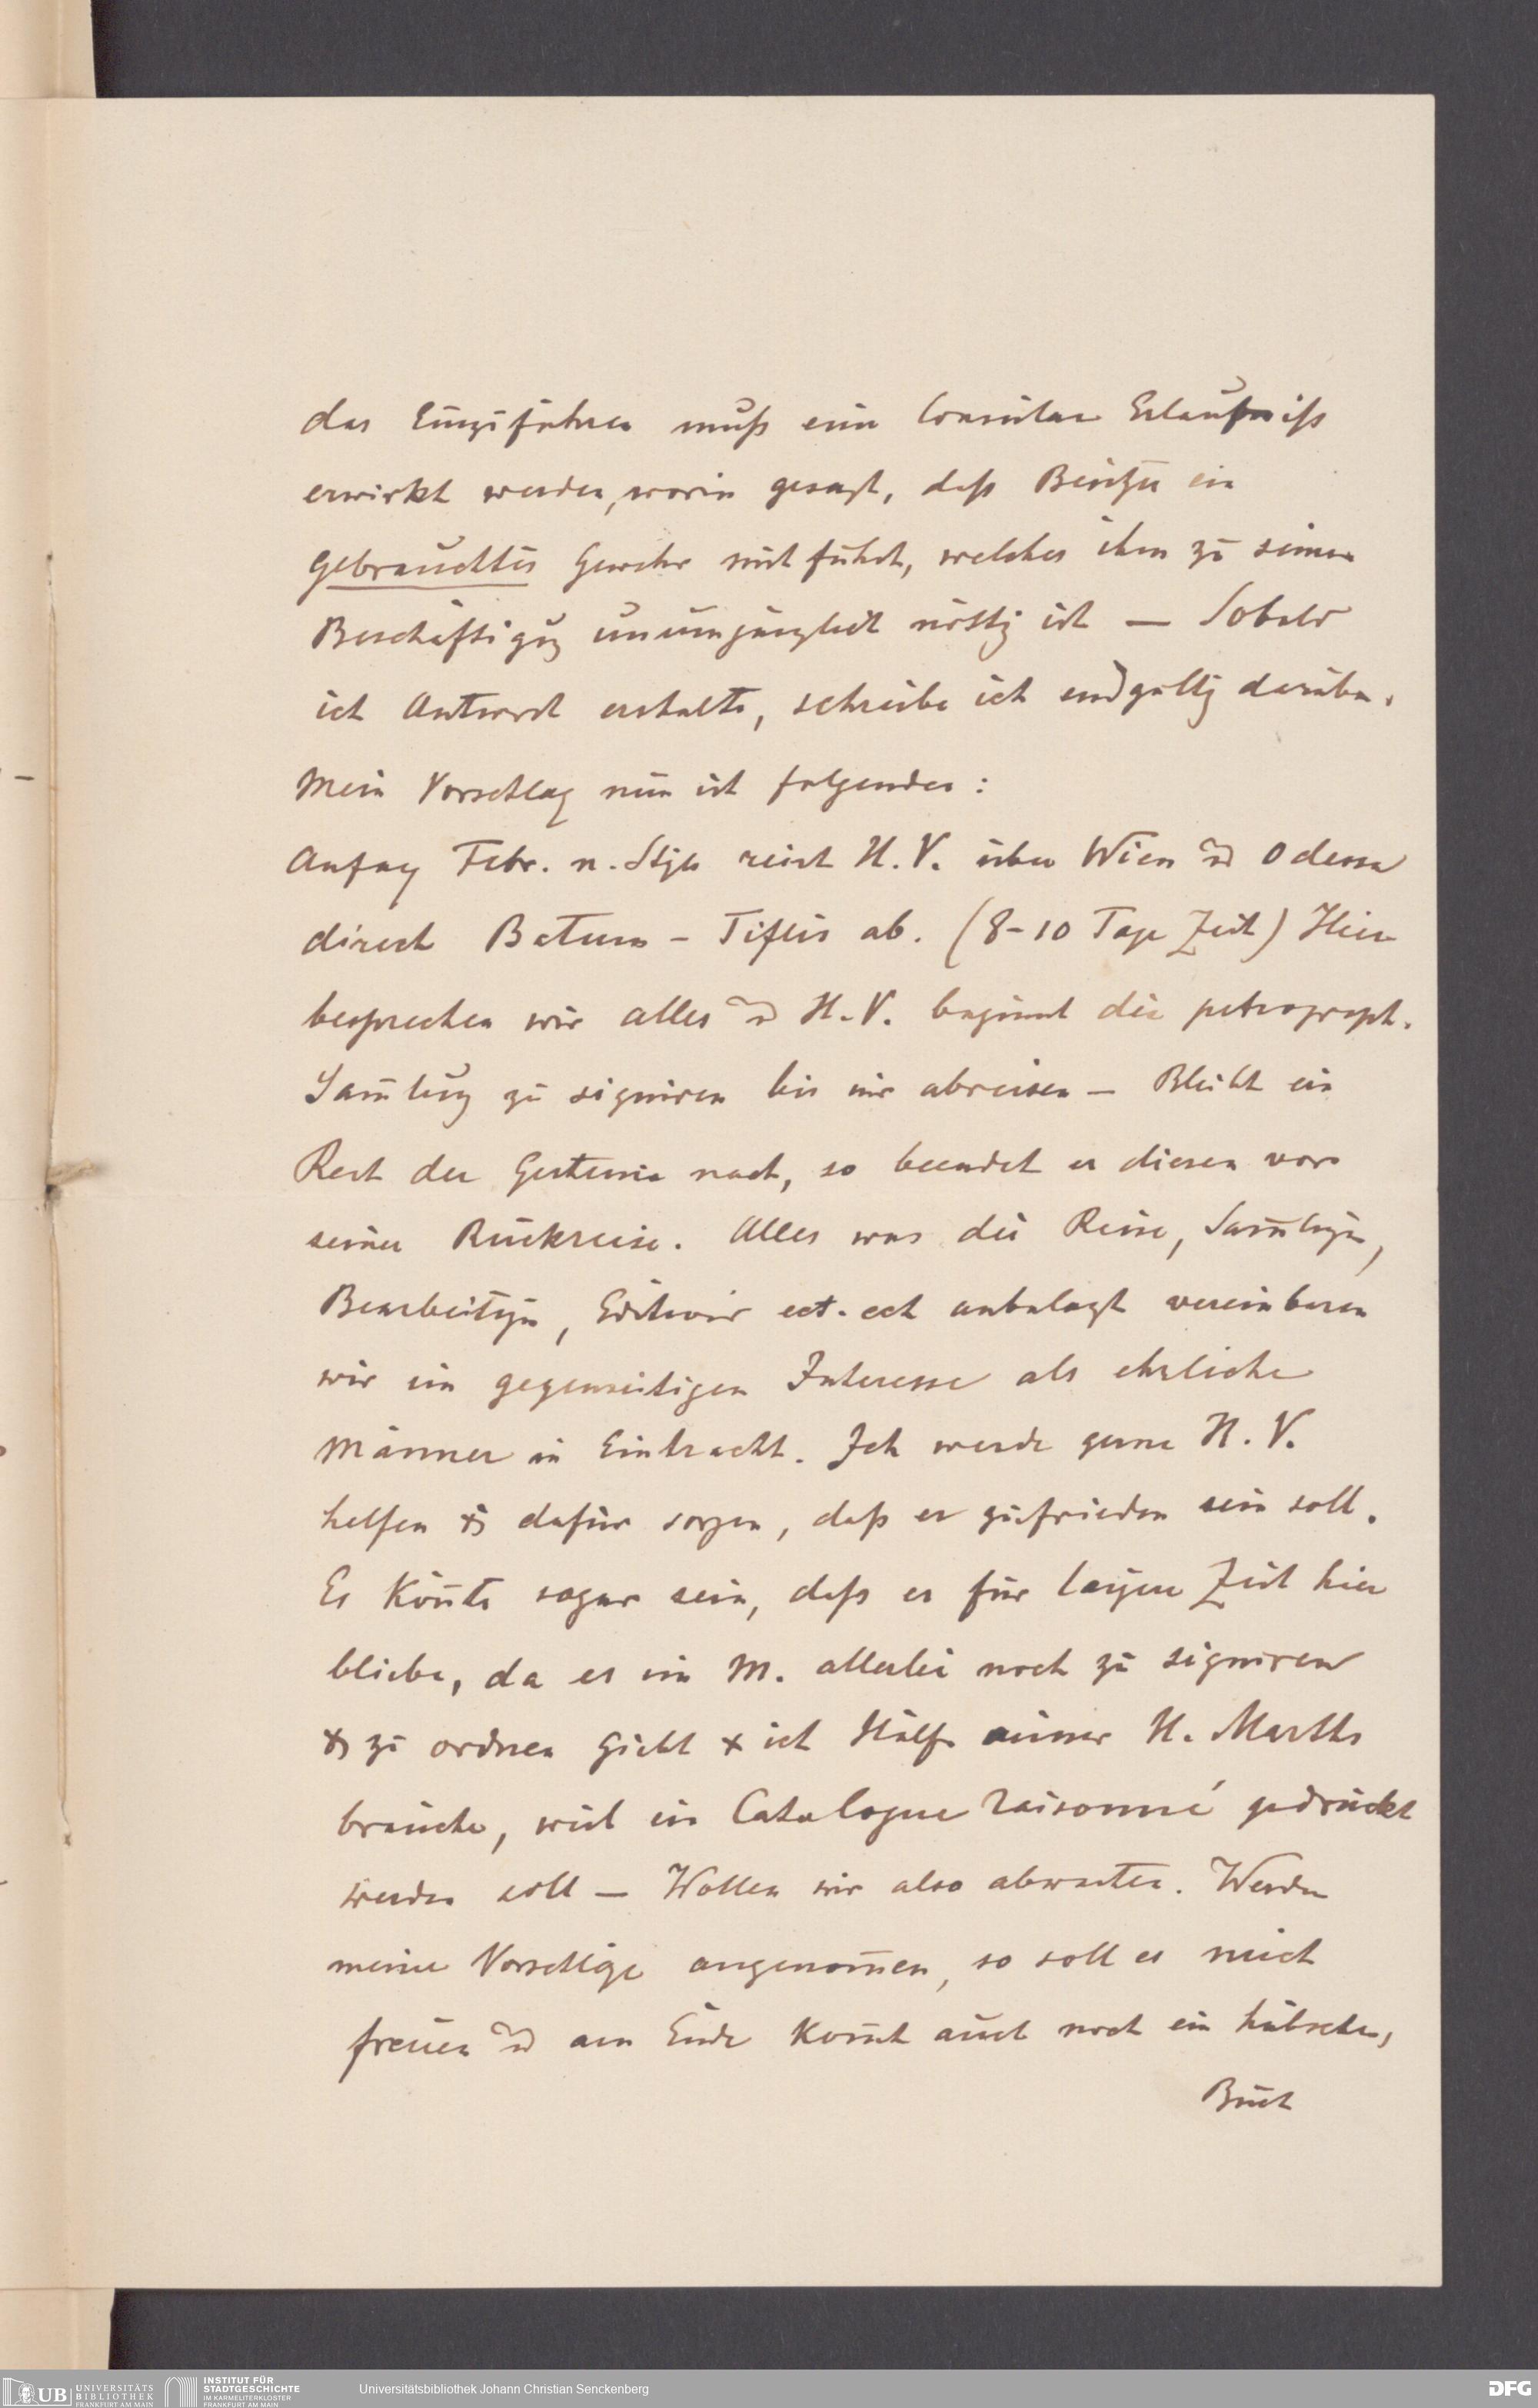 das Einzuführen muß eine Consular Erlaubniß
erwirkt werden, worin gesagt, daß Besitzer ein
gebrauchtes Gewehr mit führt, welches ihm zu seiner
Beschäftigug unumgänglich nöthig ist — Sobald
ich Antwort erhalte, schreibe ich endgültig darüber.
Mein Vorschlag nun ist folgender:
Anfag Febr. n. Styls reist H. V. über Wien u Odessa
direct Batum - Tiflis ab. (8-10 Tage Zeit) Hier
besprechen wir alles u H. V. beginnt die petrograph.
Sam̄lug zu signiren bis wir abreisen — Bleibt ein
Rest der Gesteine nach, so beendet er diesen vor
seiner Rückreise. Alles was die Reise, Sam̄lugen,
Bearbeitugen, ect. ect anbelagt vereinbaren
wir im gegenseitigen Interesse als ehrliche
Männer in Eintracht. Ich werde gerne H. V.
helfen & dafür sorgen, daß er zufrieden sein soll.
Es kön̄te sogar sein, daß er für lägere Zeit hier
bliebe, da es im M. allerlei noch zu signiren
& zu ordnen giebt & ich Hülfe meiner H.
brauche, weil ein Catalogue raisonné gedruckt
werden soll — Wollen wir also abwarten. Werden
meine Vorschläge angenom̄en, so soll es mich
freuen u am Ende kom̄t auch noch ein hübsches,
Buch
UB UNIVERSITÄTS BIBLIOTHEK FRANKFURT AM MAIN
INSTITUT FÜR STADTGESCHICHTE IM KARMELITERKLOSTER FRANKFURT AM MAIN
Universitätsbibliothek Johann Christian Senckenberg
DFG